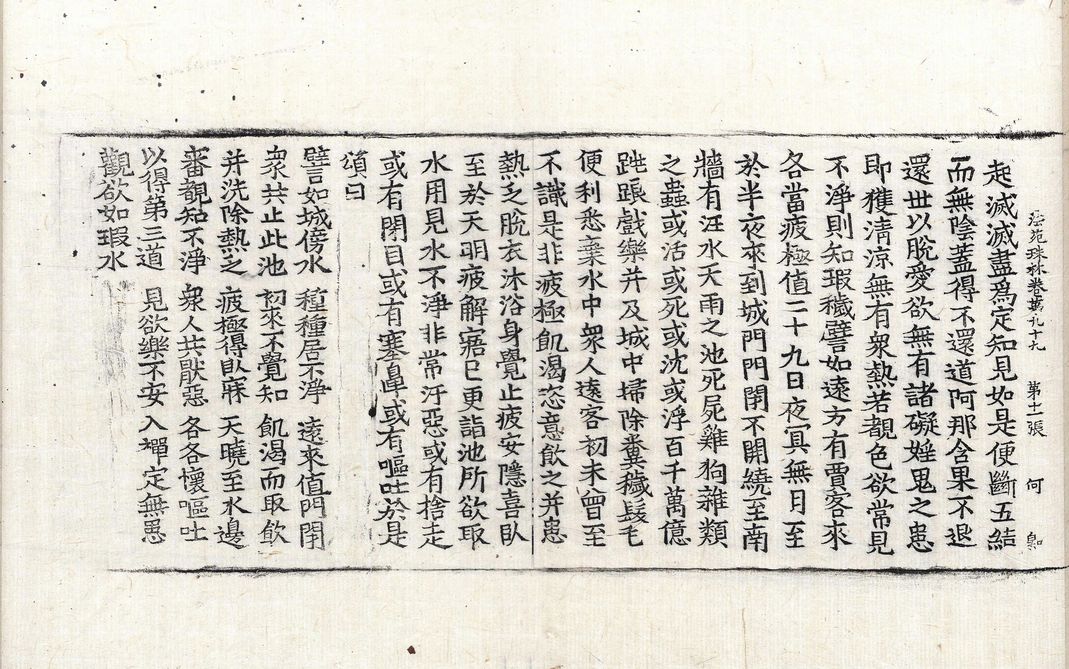 法苑珠林卷第九十九 第十一張 何
起滅滅盡爲定知見如是便斷五結
而無陰蓋得不還道阿那含果不退
還世以脫愛欲無有諸礙婬鬼之患
即獲淸涼無有衆熱若覩色欲常見
不淨則知瑕穢譬如遠方有賈客來
各當疲極値二十九日夜冥無日至
於半夜來到城門門閉不開繞至南
牆有汪水天雨之池死屍雞狗雜類
之蟲或活或死或沈或浮百千萬億
跳踉戲樂并及城中掃除糞穢髮毛
便利悉棄水中衆人遠客初未曾至
不識是非疲極飢渴恣意飮之并患
熱乏脫衣沐浴身覺止疲安隱喜臥
至於天明疲解寤已更詣池所欲取
水用見水不淨非常汙惡或有捨走
或有閉目或有塞鼻或有嘔吐於是
頌曰
譬如城傍水 種種居不淨 遠來値門閉
衆共止此池 初來不覺知 飢渴而取飮
并洗除熱乏 疲極得臥寐 天曉至水邊
審觀知不淨 衆人共猒惡 各各懷嘔吐
以得第三道 見欲樂不安 入禪定無患
觀欲如瑕水